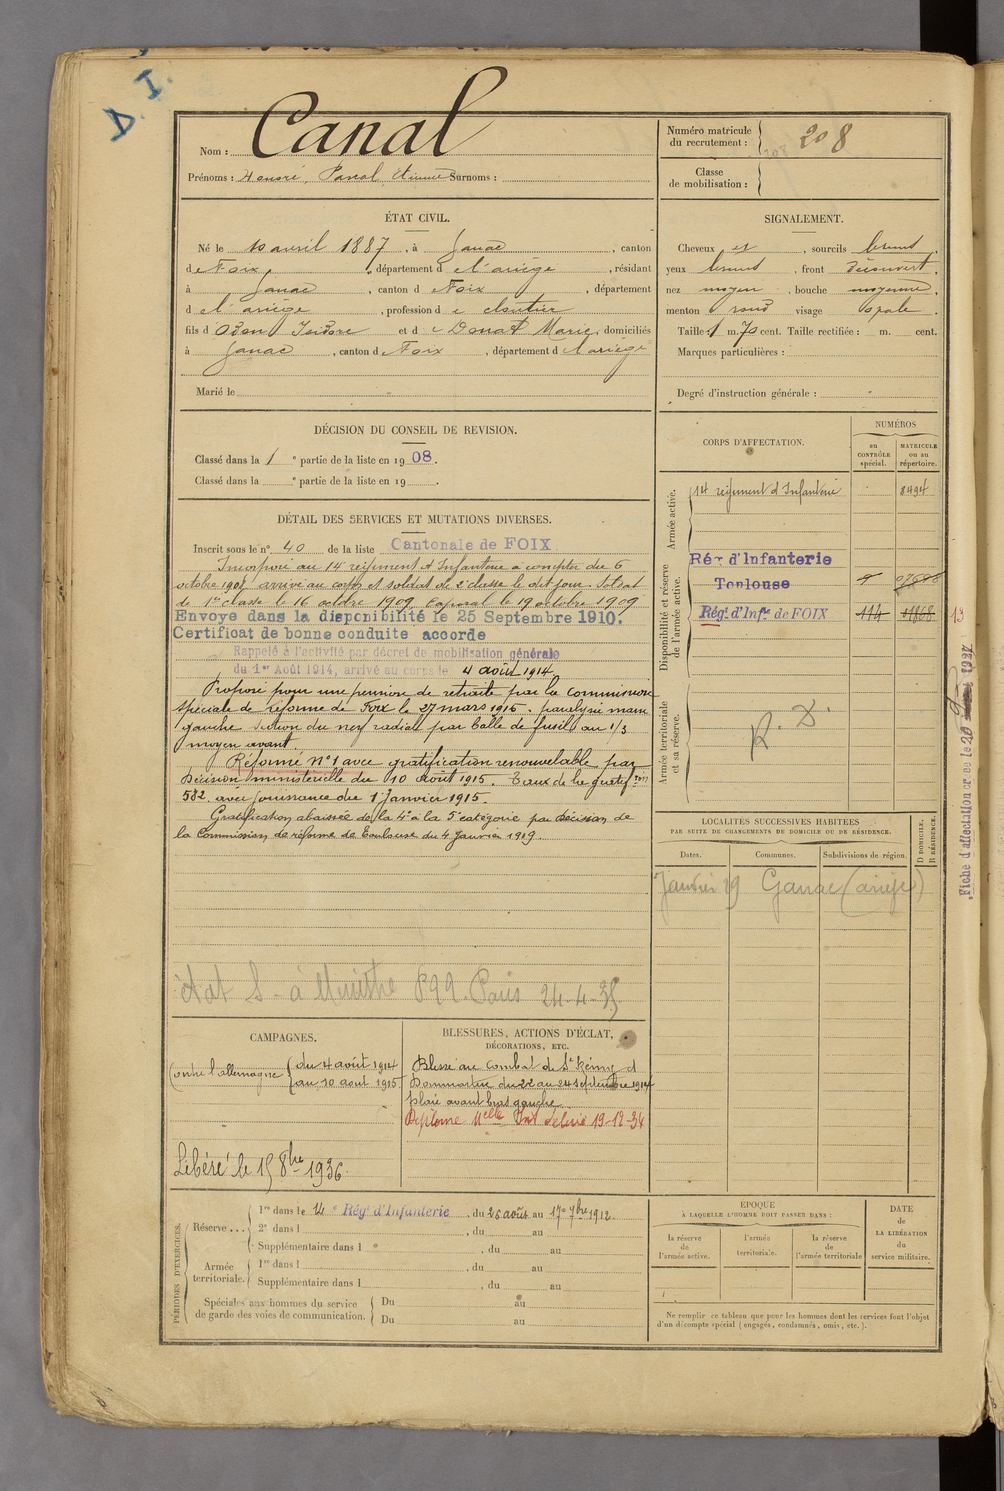 D. I.
Nom : Canal
Prénoms : Honoré, Pascal, Etienne Surnoms :
Numéro matricule du recrutement : 208
Classe de mobilisation :
ÉTAT CIVIL.
Né le 10 avril 1887, à Ganac, canton
de Foix, département de l'ariège, résidant
à Ganac, canton de Foix, département
de l'ariège, profession de cloutier
fils d Odon Isidore et de Donat Marie, domiciliés
à Ganac, canton de Foix, département de l'ariège
Marié le
SIGNALEMENT.
Cheveux et, sourcils bruns,
yeux bruns, front découvert,
nez moyen, bouche moyenne,
menton rond visage ovale.
Taille : 1 m. 70 cent. Taille rectifiée : m. cent.
Marques particulières :
Degré d'instruction générale :
DÉCISION DU CONSEIL DE REVISION.
Classé dans la 1e partie de la liste en 1908.
Classé dans la e partie de la liste en 19 .
DÉTAIL DES SERVICES ET MUTATIONS DIVERSES.
Inscrit sous le n° 40 de la liste Cantonale de FOIX
Incorporé au 14 régiment d'Infanterie à compter du 6
octobre 1908, arrivé au corps et soldat de 2e classe le dit jour. Soldat
de 1re classe le 16 octobre 1909. Caporal le 19 octobre 1909
Envoyé dans la disponibilité le 25 Septembre 1910.
Certificat de bonne conduite accordé
Rappelé à l'activité par décret de mobilisation générale
du 1er Août 1914, arrivé au corps le 4 août 1914
Proposé pour une pension de retraite par la Commission
spéciale de réforme de Foix le 27 mars 1915. paralysie main
gauche section du nerf radial par balle de fusil au 1/3
moyen avant.
Réformé N°1 avec gratification renouvelable par
Décision ministérielle du 10 août 1915. Taux de la gratifon
582 avec jouissance du 1 Janvier 1915.
Gratification abaissée de la 4e à la 5e catégorie par décision de
la Commission de réforme de Toulouse du 4 Janvier 1919.
CORPS D'AFFECTATION.
NUMÉROS
au CONTRÔLE spécial.
MATRICULE ou au répertoire.
Armée active.
14 régiment d'Infanterie 8494
Disponibilité et réserve de l'armée active.
Régt d'Infanterie
Toulouse
Régt d'Infie de FOIX 144 11868 13
Armée territoriale et sa réserve.
R. D.
Fiche d'affectation créée le 20
LOCALITÉS SUCCESSIVES HABITÉES
PAR SUITE DE CHANGEMENTS DE DOMICILE OU DE RÉSIDENCE.
Dates. Communes. Subdivisions de région. D DOMICILE. R RÉSIDENCE.
Janvier 19 Ganac (ariège)
Etat S. à Paris 24-4-35
CAMPAGNES.
Contre l'allemagne du 4 août 1914
au 10 août 1915
Libéré le 15 8bre 1936.
BLESSURES, ACTIONS D'ÉCLAT,
DÉCORATIONS, ETC.
Blessé au combat de St Rémy et
Dommartin du 22 au 24 septembre 1914
plaie avant bras gauche
Diplôme 19-12-34
PÉRIODES D'EXERCICES.
Réserve ... 1re dans le 14e Régt d'Infanterie, du 26 août au 17 7bre 1912
2e dans l , du au
Supplémentaire dans l , du au
Armée territoriale. 1re dans l , du au
Supplémentaire dans l , du au
Spéciales aux hommes du service de garde des voies de communication. Du au
Du au
ÉPOQUE
À LAQUELLE L'HOMME DOIT PASSER DANS :
la réserve de l'armée active.
l'armée territoriale.
la réserve de l'armée territoriale
DATE de LA LIBÉRATION du service militaire.
Ne remplir ce tableau que pour les hommes dont les services font l'objet
d'un décompte spécial (engagés, condamnés, omis, etc.).